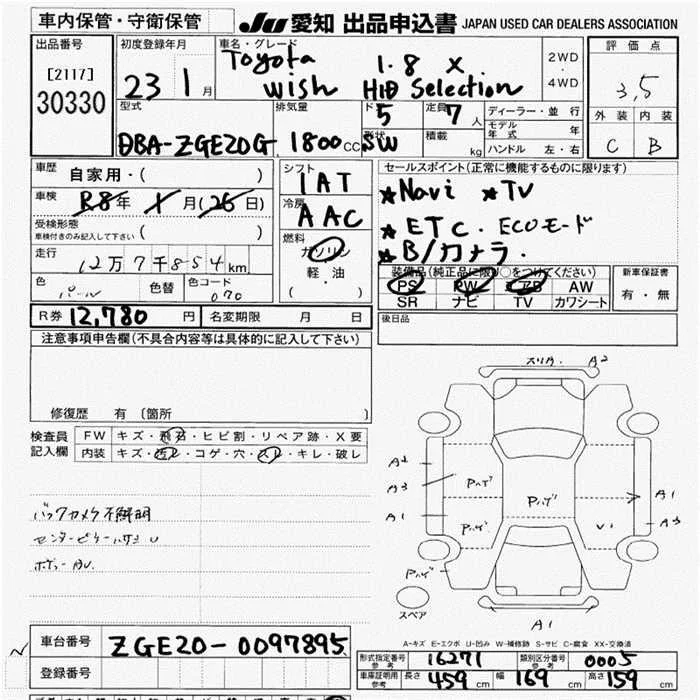 車内保管・守衛保管
JU 愛知 出品申込書 JAPAN USED CAR DEALERS ASSOCIATION
出品番号
[2117]
30330
初度登録年月
23 1月
車名・グレード
Toyota 1.8 X
Wish HID Selection
2WD
・
4WD
評価点
3,5
外装 内装
C B
型式
DBA-ZGE20G
排気量
1800cc
ド 5
形状 SW
定員 7人
積載 kg
ディーラー・並行
モデル年式 年
ハンドル 左・右
車歴 自家用・( )
車検 R8年 X月(26日)
受検形態
車検付きのみ記入して下さい ( )
走行 12万7千854km
色 パール 色替 色コード 070
シフト
IAT
冷房
AAC
燃料
ガソリン
軽・油
( ・ )
セールスポイント(正常に機能するものに限ります)
★Navi ★TV
★ETC. ECOモード
★B/カメラ.
装備品(純正品に限り○をつけてください)
PS PW AB AW
SR ナビ TV カワシート
新車保証書
有・無
R券 12,780円 名変期限 月 日
後日品
注意事項申告欄(不具合内容等は具体的に記入して下さい)
修復歴 有 〔箇所 〕
検査員
記入欄
FW キズ・飛石・ヒビ割・リペア跡・X要
内装 キズ・汚レ・コゲ・穴・スレ・キレ・破レ
バックカメラ不鮮明
ボディーAU.
スリ丹. A2
A2
A3
A1
Pハゲ
Pハゲ
Pハゲ
Pハゲ
A1
A3
V1
A1
スペア
A-キズ E-エクボ U-凹み W-補修跡 S-サビ C-腐食 XX-交換済
車台番号 ZGE20-0097895
登録番号
形式指定番号 参考 16271 類別区分番号 参考 0005
車庫証明用 参考 長さ 459cm 幅 169cm 高さ 159cm